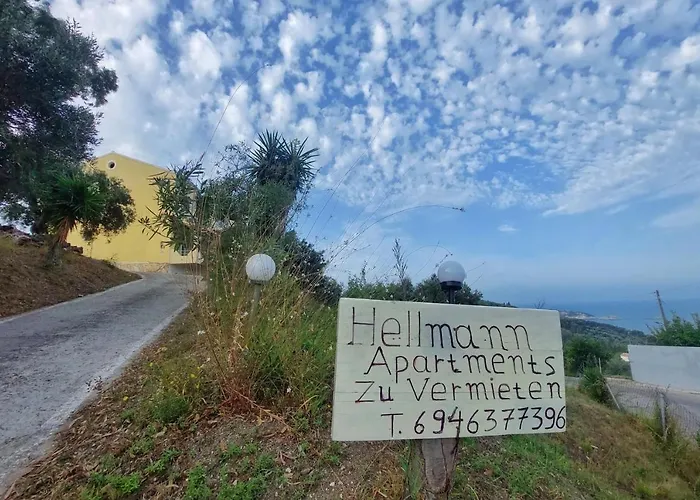 Hellmann
Apartments
Zu Vermieten
T. 6946377396